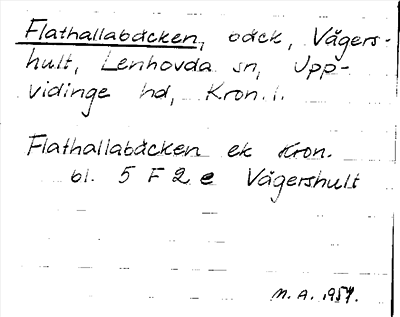 Flathallabäcken, bäck, Vågers-
hult, Lenhovda sn, Upp-
vidinge hd, Kron. l.
Flathallabäcken ek Kron.
bl. 5 F 2 e Vågershult
M. A. 1957.